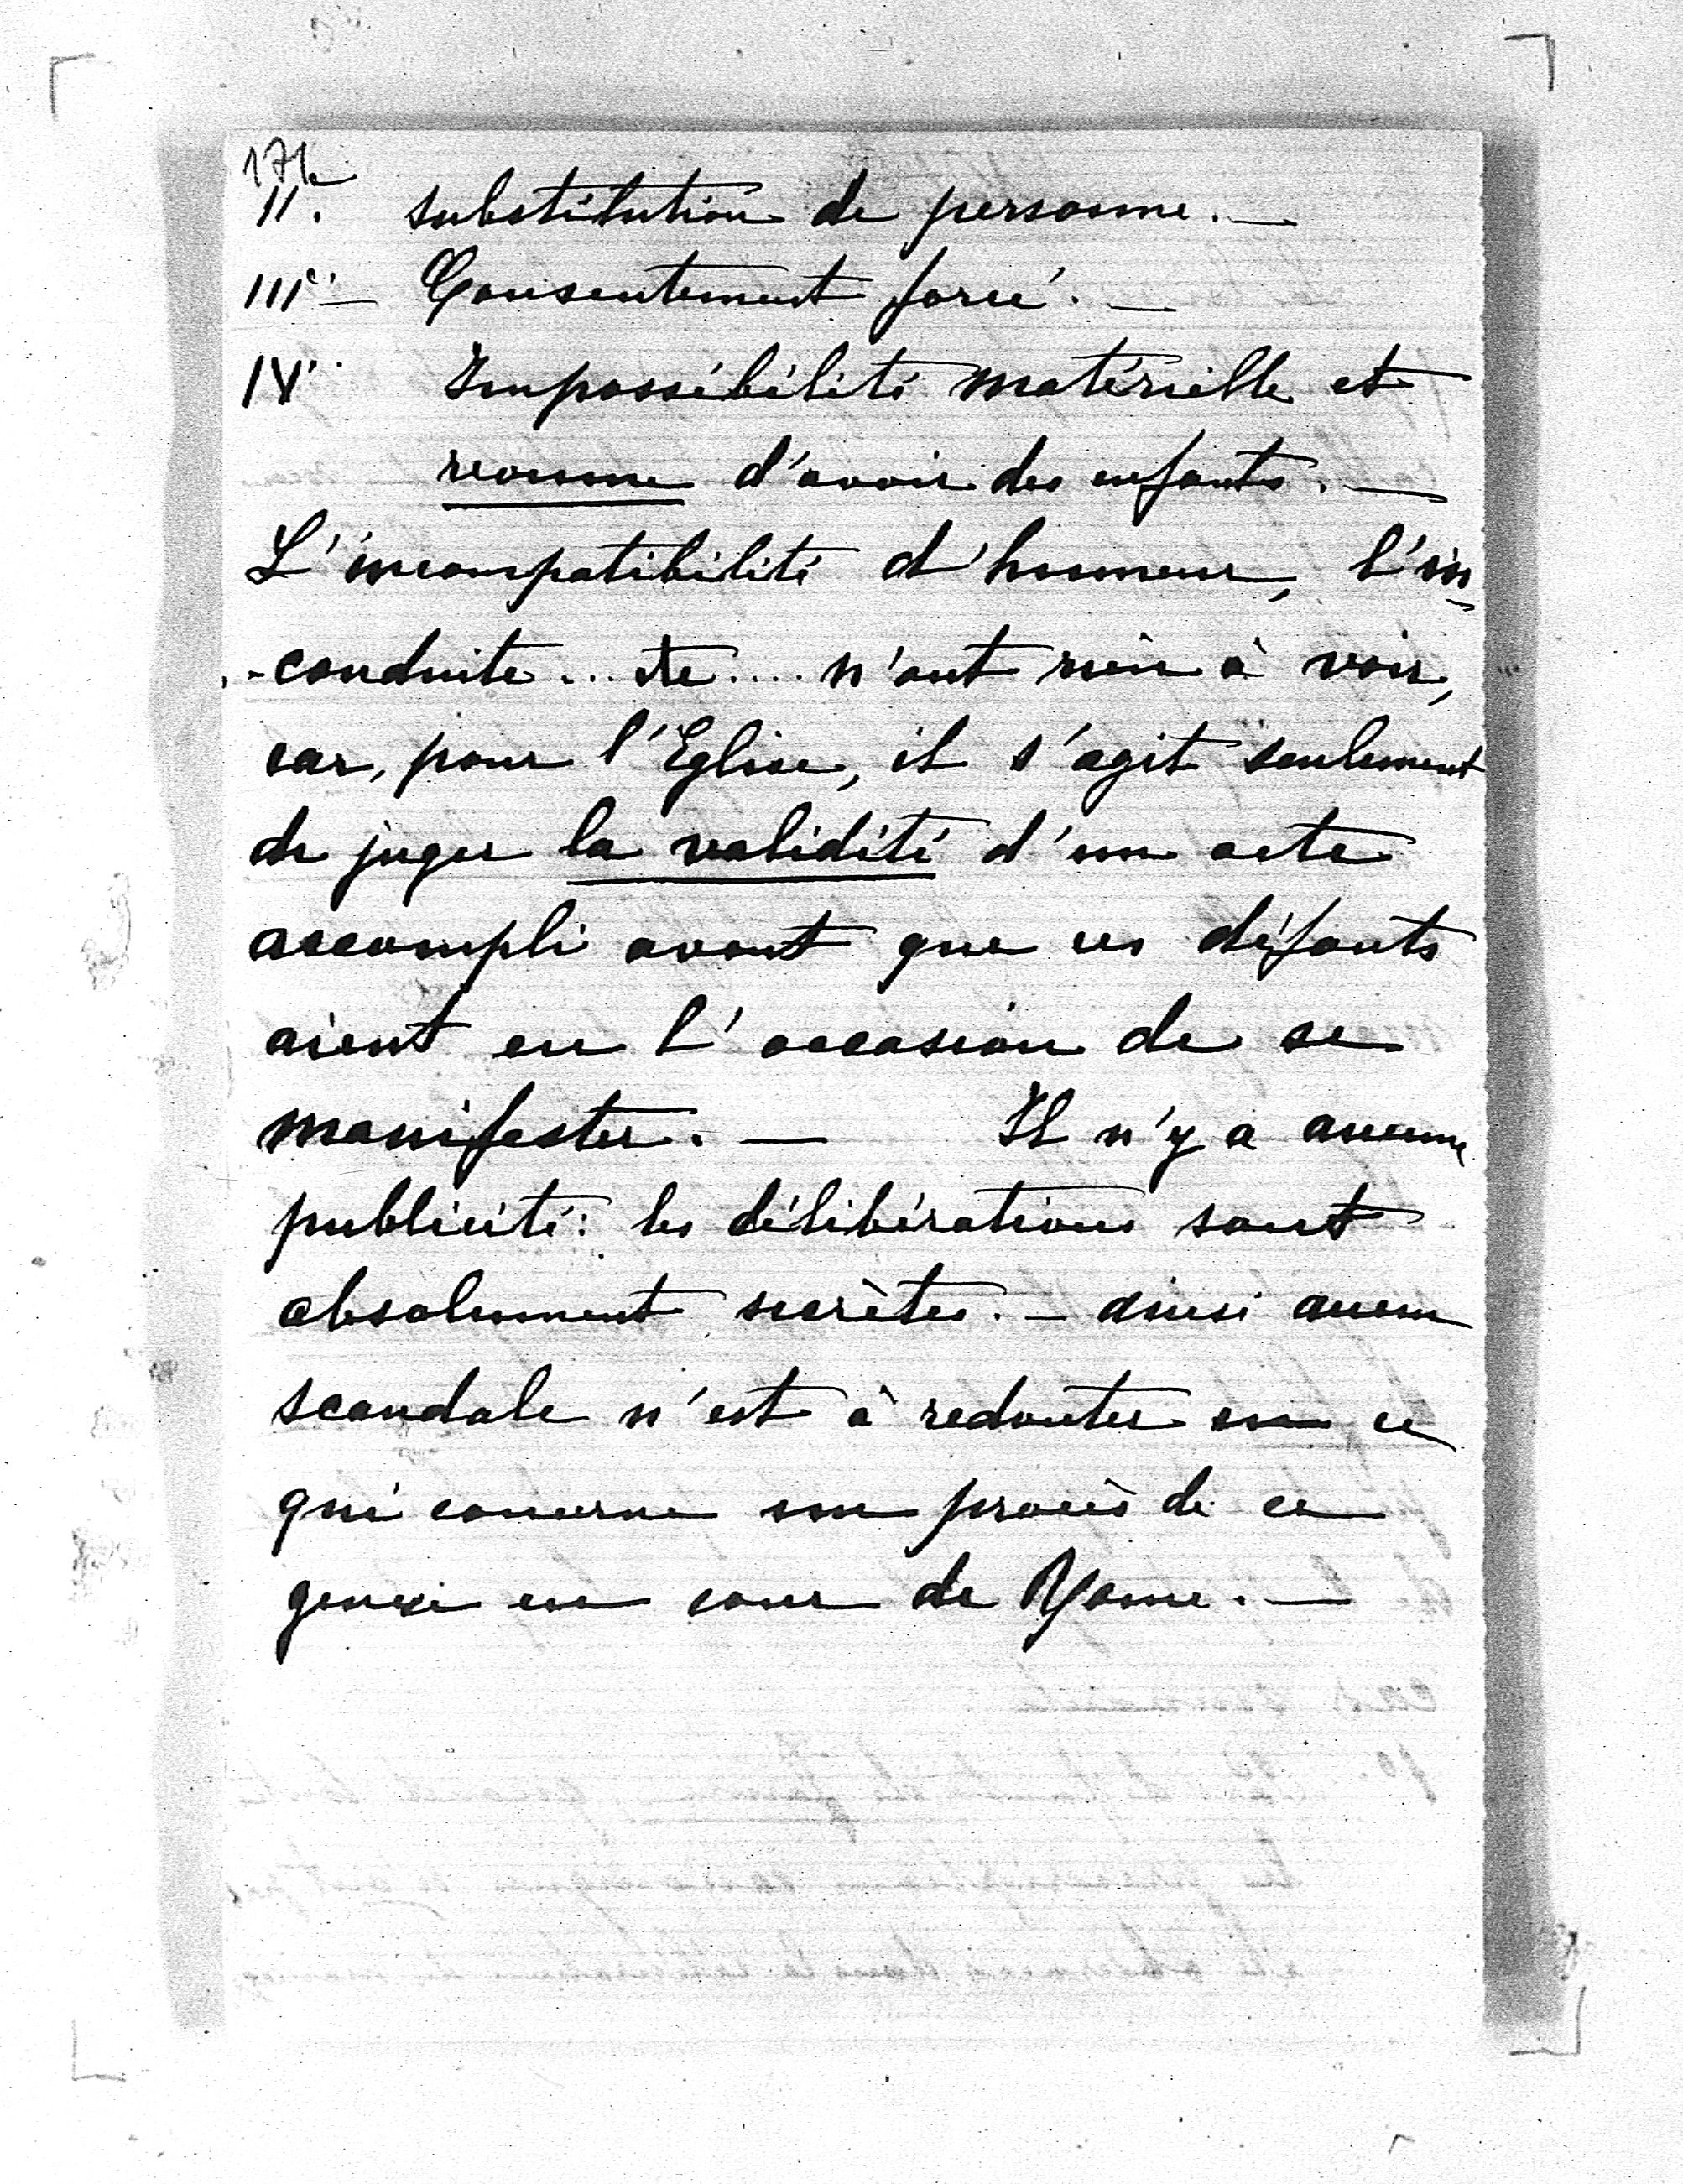 171
II. substitution de personne. —
III°- Consentement forcé. —
IV° Impossibilité matérielle et
reconnue d'avoir des enfants. —
L'incompatibilité d'humeur, l'in
-conduite... etc.... n'ont rien à voir,
car, pour l'Eglise, il s'agit seulement
de juger la validité d'un acte
accompli avant que ces défauts
aient eu l'occasion de se
manifester. — Il n'y a aucune
publicité: les délibérations sont
absolument secrètes. — ainsi aucun
scandale n'est à redouter en ce
qui concerne un procès de ce
genre en cour de Rome. —